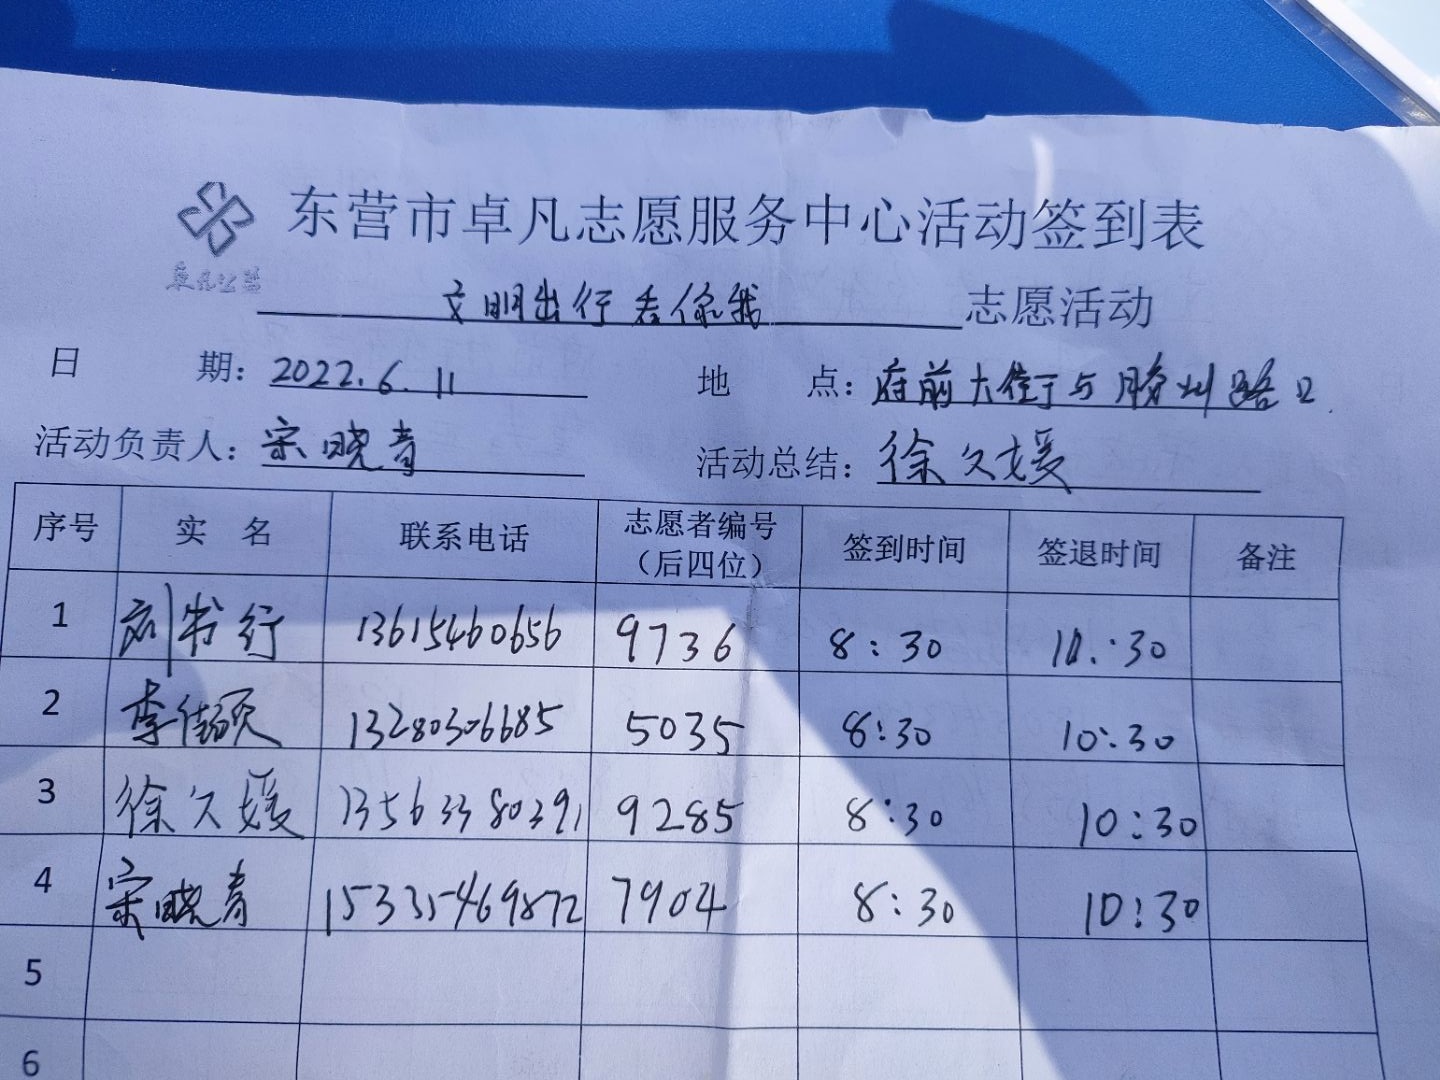 东营市卓凡志愿服务中心活动签到表
卓凡公益
文明出行 看你我 志愿活动
日 期：2022.6.11 地 点：府前大街与胶州路口
活动负责人：宋晓青 活动总结：徐久媛
序号 实 名 联系电话 志愿者编号（后四位） 签到时间 签退时间 备注
1 刘书行 13615460656 9736 8:30 10:30
2 李佳硕 13280306685 5035 8:30 10:30
3 徐久媛 13563380391 9285 8:30 10:30
4 宋晓青 15335469872 7904 8:30 10:30
5
6